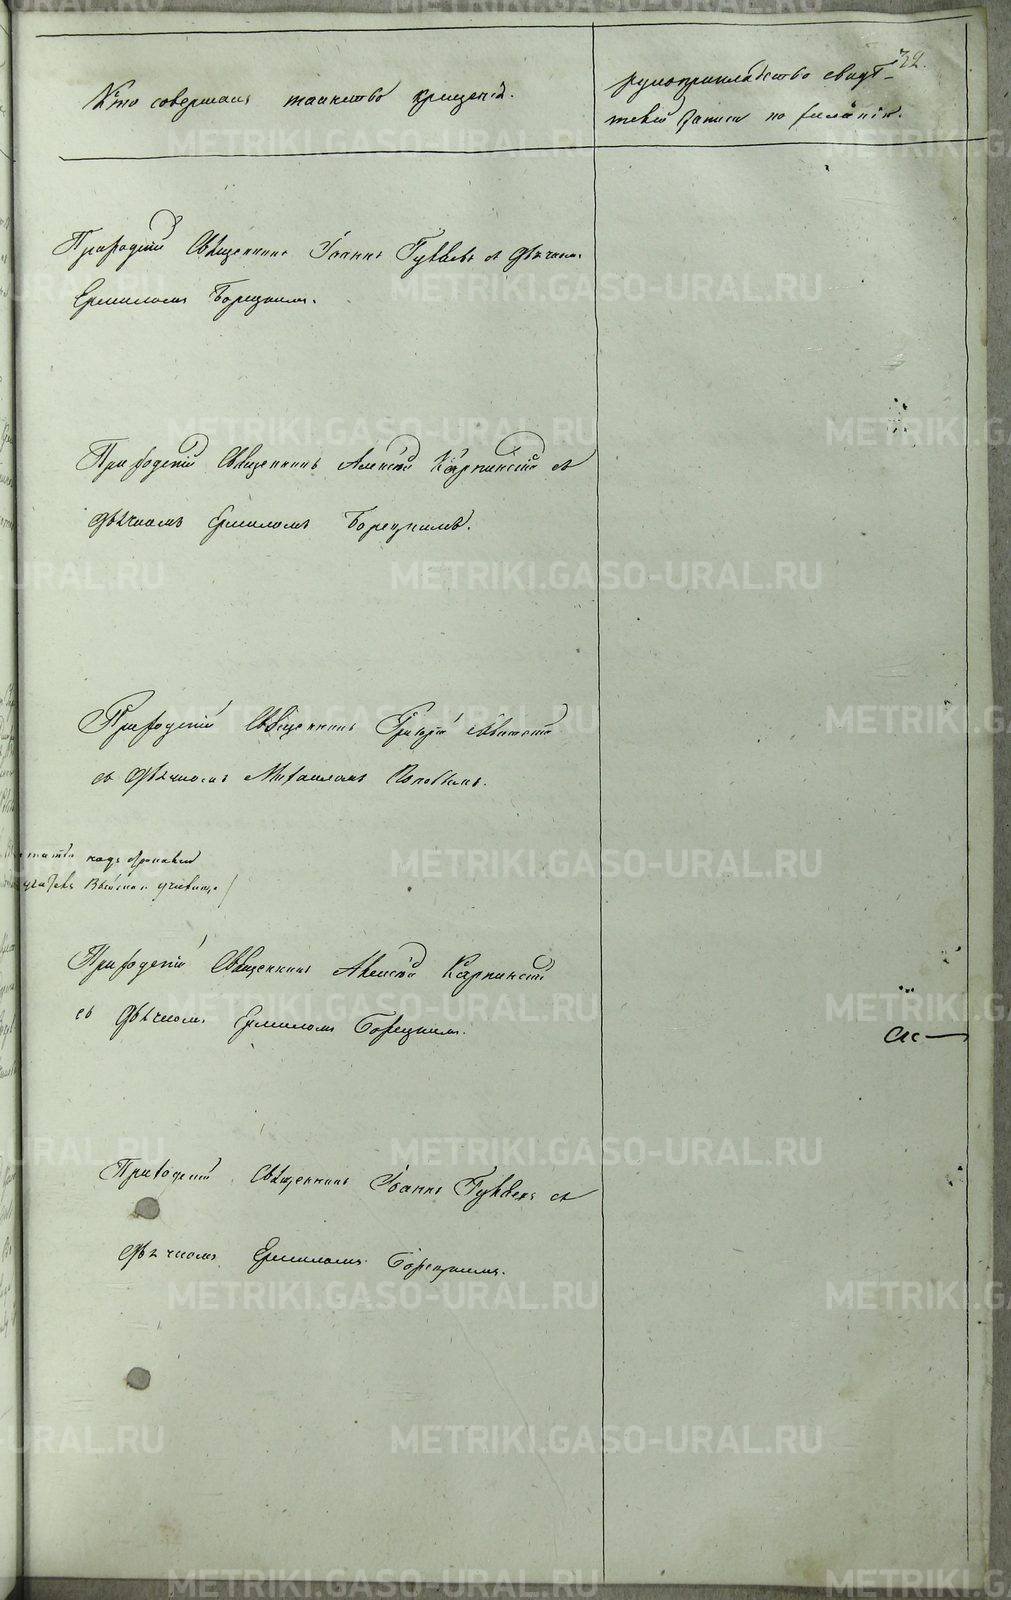 32.
Кто совершалъ таинство крещенія.
рукоприкладство свидѣ-
телей записи по желанію.
Приходскій Священникъ Іоаннъ съ дьячкомъ
Ермиломъ Борецкимъ.
Приходскій Священникъ Алексій Карпинскій съ
дьячкомъ Ермиломъ Борецкимъ.
Приходскій Священникъ Григорій
съ дьячкомъ Михаиломъ Поповымъ.
училища)
Приходскій Священникъ Алексій Карпинскій
съ дьячкомъ Ермиломъ Борецкимъ.
Приходскій Священникъ Іоаннъ съ
дьячкомъ Ермиломъ Борецкимъ.
METRIKI.GASO-URAL.RU